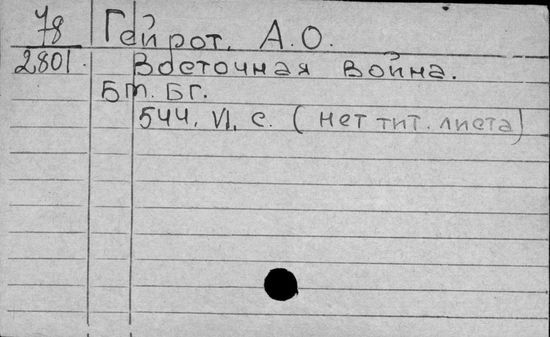 78 Гейрот. А.О.
2801. Восточная война.
Бт. Бг.
544. VI. с. (нет тит. листа)